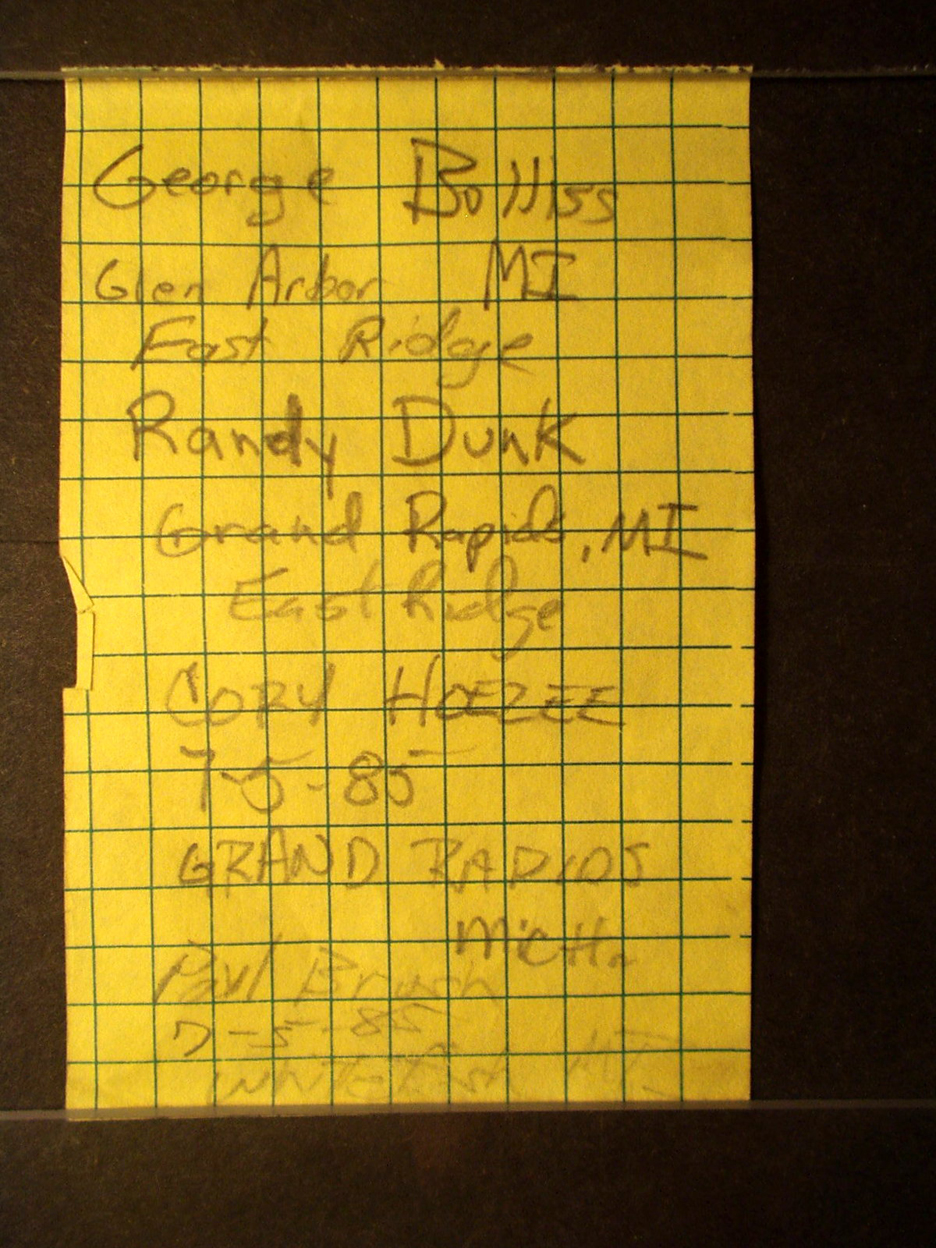 George Bolliss
Glen Arbor MI
East Ridge
Randy Dunk
Grand Rapids, MI
East Ridge
CORY HOEZEE
7-5-85
GRAND RAPIDS
MICH.
Paul
7-5-85
Whitefish MT